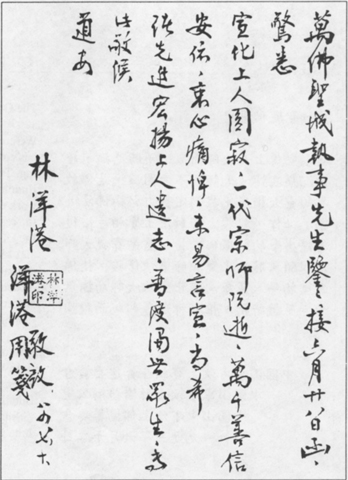 萬佛聖城執事先生鑒：接六月廿八日函，
驚悉
宣化上人圓寂，一代宗師既逝，萬千善信
安依，衷心痛悼，未易言宣，尚希
張先進宏揚上人遺志，普度闔世眾生，專
此敬候
道安
林洋港
敬啟
林洋港印
洋港用箋